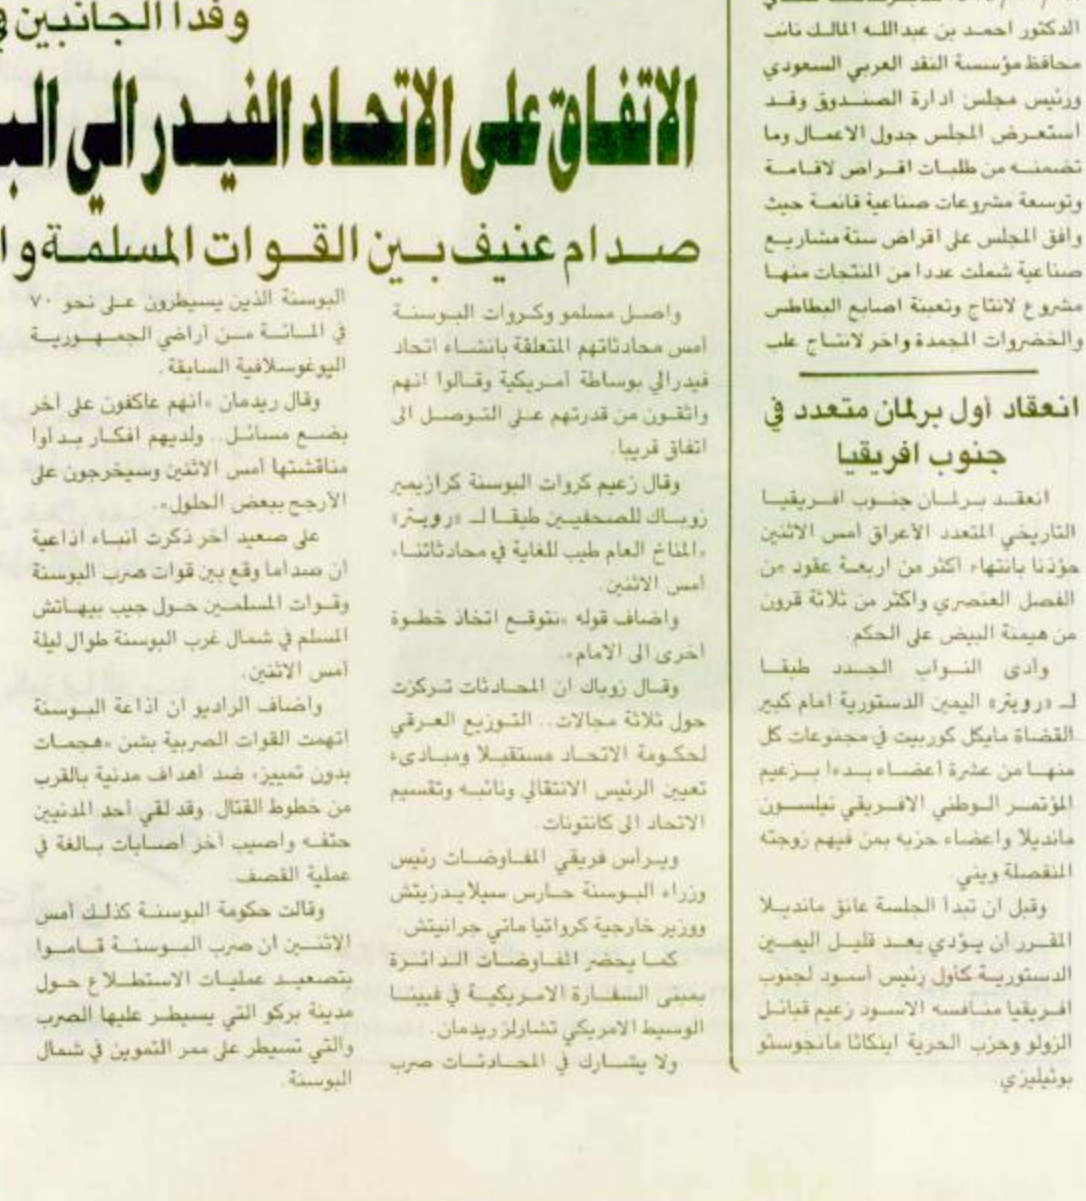 الدكتور احمد بن عبدالله المالك نائب
محافظ مؤسسة النقد العربي السعودي
ورئيس مجلس ادارة الصندوق وقد
أستعرض المجلس جدول الاعمال وما
تضمنه من طلبات اقراض لاقامة
وتوسعة مشروعات صناعية قائمة حيث
وافق المجلس على اقراض ستة مشاريع
صناعية شملت عددا من المنتجات منها
مشروع لانتاج وتعبئة اصابع البطاطس
والخضروات المجمدة واخر لانتاج علب
انعقاد أول برلمان متعدد في
جنوب افريقيا
انعقد برلمان جنوب افريقيا
التاريخي المتعدد الأعراق أمس الاثنين
مؤذنا بانتهاء أكثر من اربعة عقود من
الفصل العنصري واكثر من ثلاثة قرون
من هيمنة البيض على الحكم
وأدى النواب الجدد طبقا
لـ «رويتر» اليمين الدستورية امام كبير
القضاة مايكل كوربيت في مجموعات كل
منها من عشرة أعضاء بدءا بزعيم
المؤتمر الوطني الافريقي نيلسون
مانديلا واعضاء حزبه بمن فيهم زوجته
المنفصلة ويني
وقبل ان تبدأ الجلسة عانق مانديلا
المقرر ان يؤدي بعد قليل اليمين
الدستورية كأول رئيس أسود لجنوب
افريقيا منافسه الاسود زعيم قبائل
الزولو وحزب الحرية اينكاثا مانجوستو
بوثيليزي.
وفدا الجانبين
الاتفاق على الاتحاد الفيدرالي
صدام عنيف بين القوات المسلمة
واصل مسلمو وكروات البوسنة
أمس محادثاتهم المتعلقة بانشاء اتحاد
فيدرالي بوساطة أمريكية وقالوا انهم
واثقون من قدرتهم على التوصل الى
اتفاق قريبا.
وقال زعيم كروات البوسنة كرازيمير
زوباك للصحفيين طبقا لـ «رويتر»
«المناخ العام طيب للغاية في محادثاتنا»
أمس الاثنين.
واضاف قوله «نتوقع اتخاذ خطوة
أخرى الى الامام».
وقال زوباك ان المحادثات تركزت
حول ثلاثة مجالات.. التوزيع العرقي
لحكومة الاتحاد مستقبلا ومبادىء
تعيين الرئيس الانتقالي ونائبه وتقسيم
الاتحاد الى كانتونات.
ويرأس فريقي المفاوضات رئيس
وزراء البوسنة حارس سيلايدزيتش
ووزير خارجية كرواتيا ماتي جرانيتش.
كما يحضر المفاوضات الدائرة
بمبنى السفارة الامريكية في فيينا
الوسيط الامريكي تشارلز ريدمان.
ولا يشارك في المحادثات صرب
البوسنة الذين يسيطرون على نحو ٧٠
في المائة من أراضي الجمهورية
اليوغوسلافية السابقة.
وقال ريدمان «انهم عاكفون على أخر
بضع مسائل.. ولديهم افكار بدأوا
مناقشتها أمس الاثنين وسيخرجون على
الارجح ببعض الحلول».
على صعيد أخر ذكرت أنباء اذاعية
ان صداما وقع بين قوات صرب البوسنة
وقوات المسلمين حول جيب بيهاتش
المسلم في شمال غرب البوسنة طوال ليلة
أمس الاثنين.
واضاف الراديو ان اذاعة البوسنة
اتهمت القوات الصربية بشن «هجمات
بدون تمييز» ضد أهداف مدنية بالقرب
من خطوط القتال. وقد لقي أحد المدنيين
حتفه واصيب أخر اصابات بالغة في
عملية القصف.
وقالت حكومة البوسنة كذلك أمس
الاثنين ان صرب البوسنة قاموا
بتصعيد عمليات الاستطلاع حول
مدينة بركو التي يسيطر عليها الصرب
والتي تسيطر على ممر التموين في شمال
البوسنة.